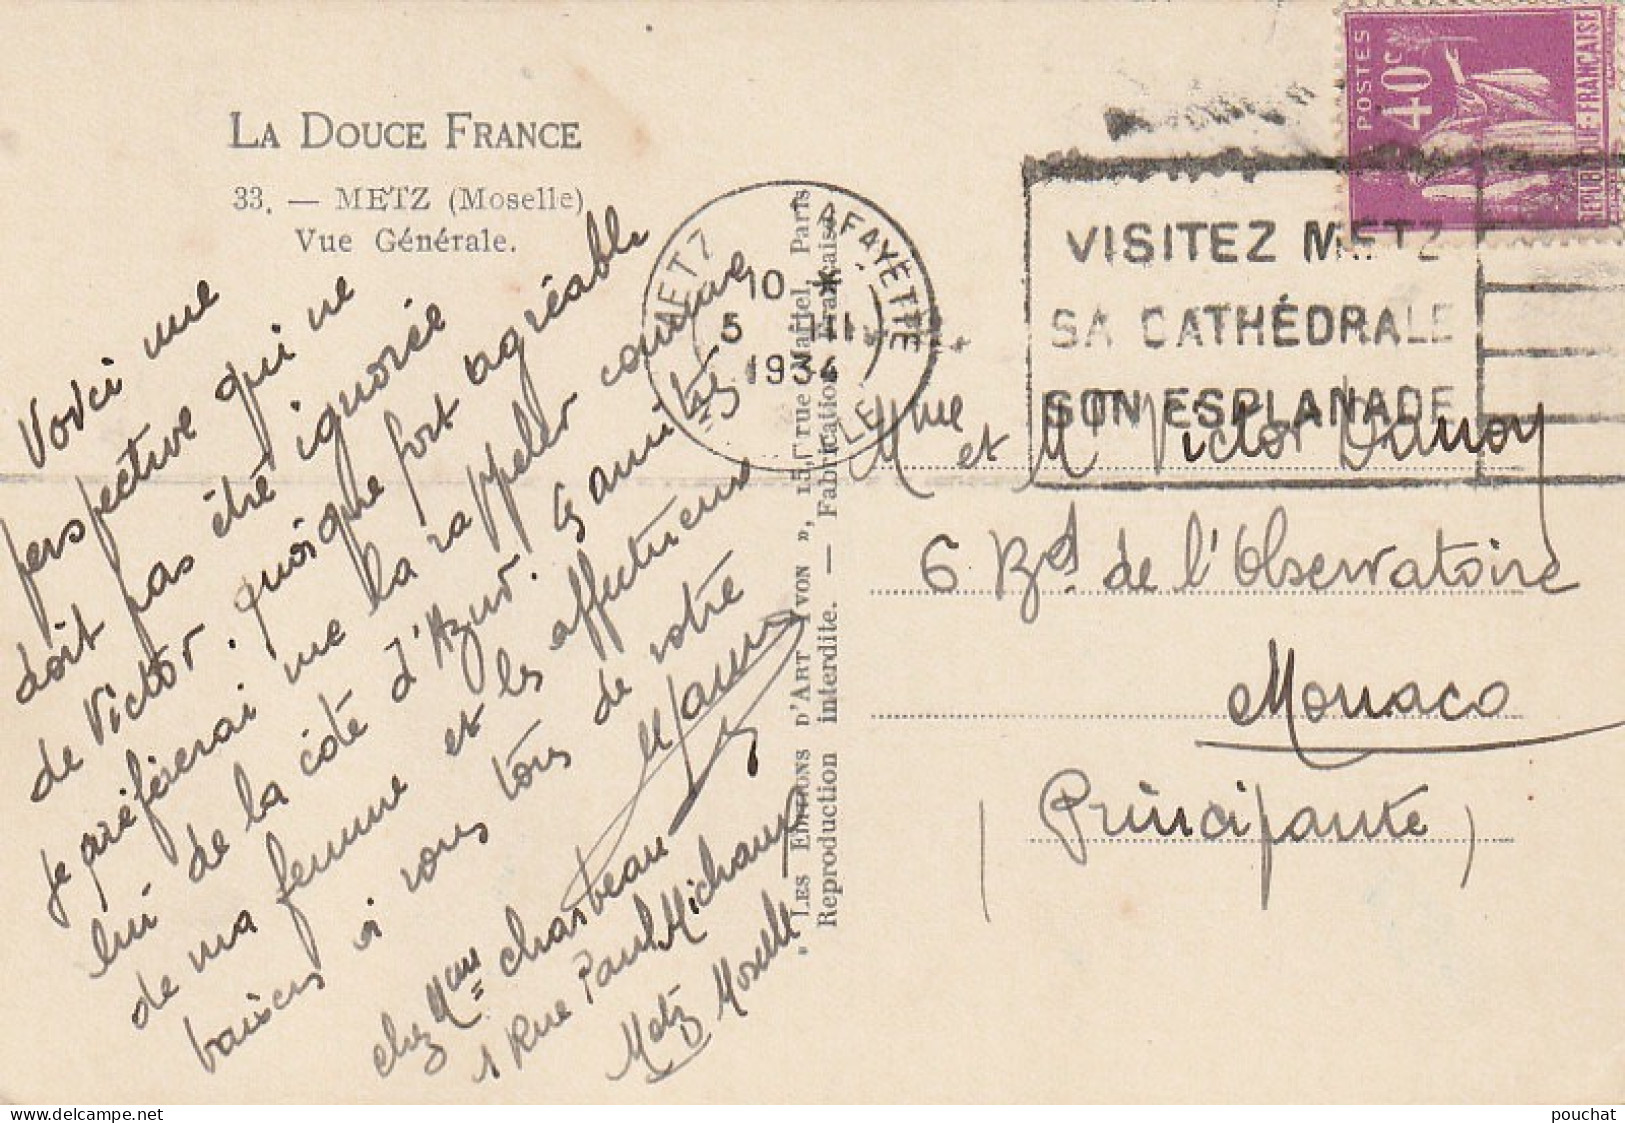 LA DOUCE FRANCE
33. — METZ (Moselle)
Vue Générale.
Voici une
perspective qui ne
doit pas être ignorée
de Victor. quoique fort agréable
je préférerai me la rappeler comme
lui de la côte d'Azur. Les amitiés
de ma femme et les affectueux
baisers à vous tous de votre
chez Mme
1 Rue Paul Michaux
Metz Moselle
" LES EDITIONS D'ART YVON ", 15, rue Martel, Paris
Reproduction interdite. — Fabrication Française
METZ LAFAYETTE
10 *
5 III
1934
VISITEZ METZ
SA CATHÉDRALE
SON ESPLANADE
POSTES
40c
REPUBLIQUE-FRANÇAISE
Mme et M Victor
6 Bd de l'Observatoire
Monaco
(Principauté)
delcampe.net
pouchat